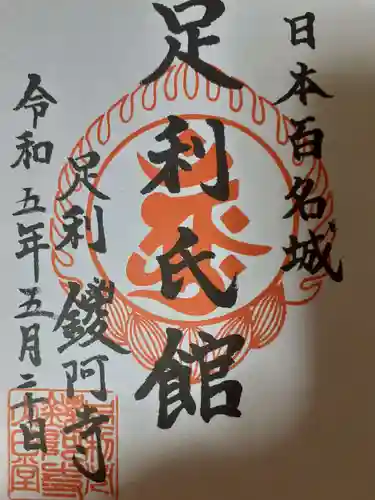 日本百名城
足利氏館
足利 鑁阿寺
令和五年五月二十日